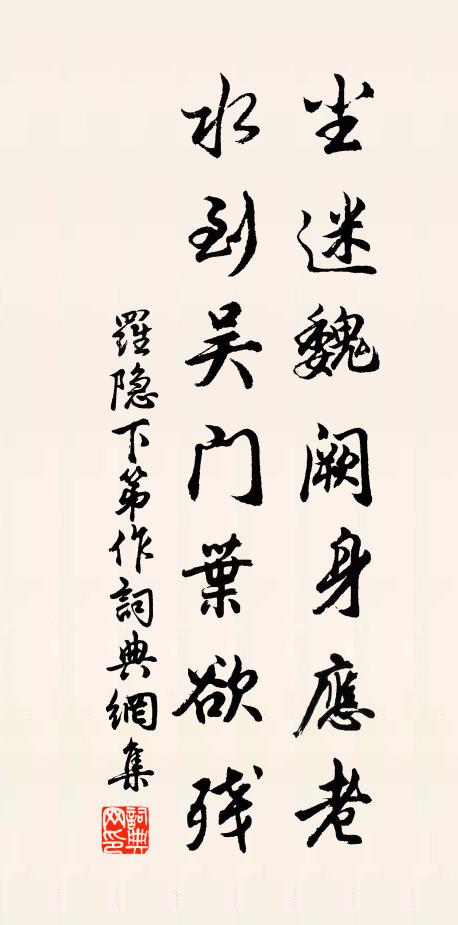 尘迷魏阙身應老
水到吴门葉欲残
羅隐下第作詞典網集
詞典网印